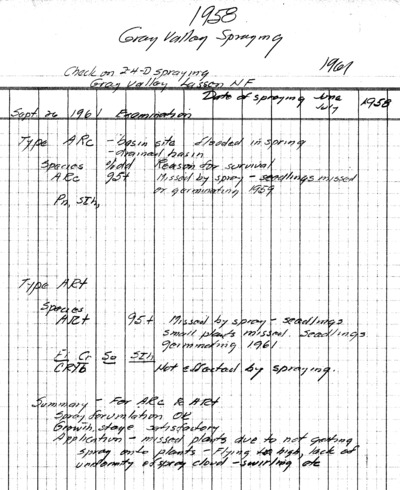 1958
Gray Valley Spraying
1961
Check on 2-4-D spraying
Gray Valley Lassen NF
Date of spraying June July 1958
Sept 26 1961 Examination
Type ARc - basin site flooded in spring
- drained basin
Species %dd Reason for survival
ARc 95+ Missed by spray - seedlings missed
or germinating 1959
Pn, SIh,
Type ARt
Species
ARt 95+ Missed by spray - seedlings
small plants missed. Seedlings
germinating 1961
Er Cr So SIh
CRYB Not effected by spraying.
Summary - For ARc & ARt
Spray forumlation OK
Growth stage satisfactory
Application - missed plants due to not getting
spray onto plants - Flying to high, lack of
uniformity of spray cloud - swirling etc